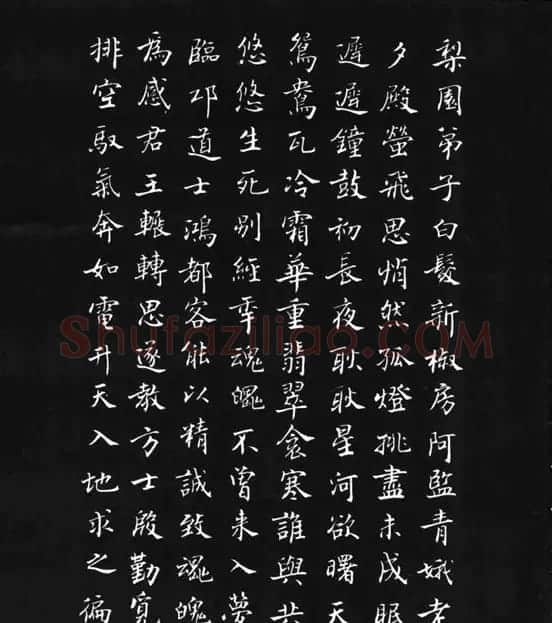 梨園弟子白髮新椒房阿監青娥老
夕殿螢飛思悄然孤燈挑盡未成眠
遲遲鐘鼓初長夜耿耿星河欲曙天
鴛鴦瓦冷霜華重翡翠衾寒誰與共
悠悠生死別經年魂魄不曾來入夢
臨邛道士鴻都客能以精誠致魂魄
為感君王輾轉思遂教方士殷勤覓
排空馭氣奔如電升天入地求之徧
Shufaziliao.com